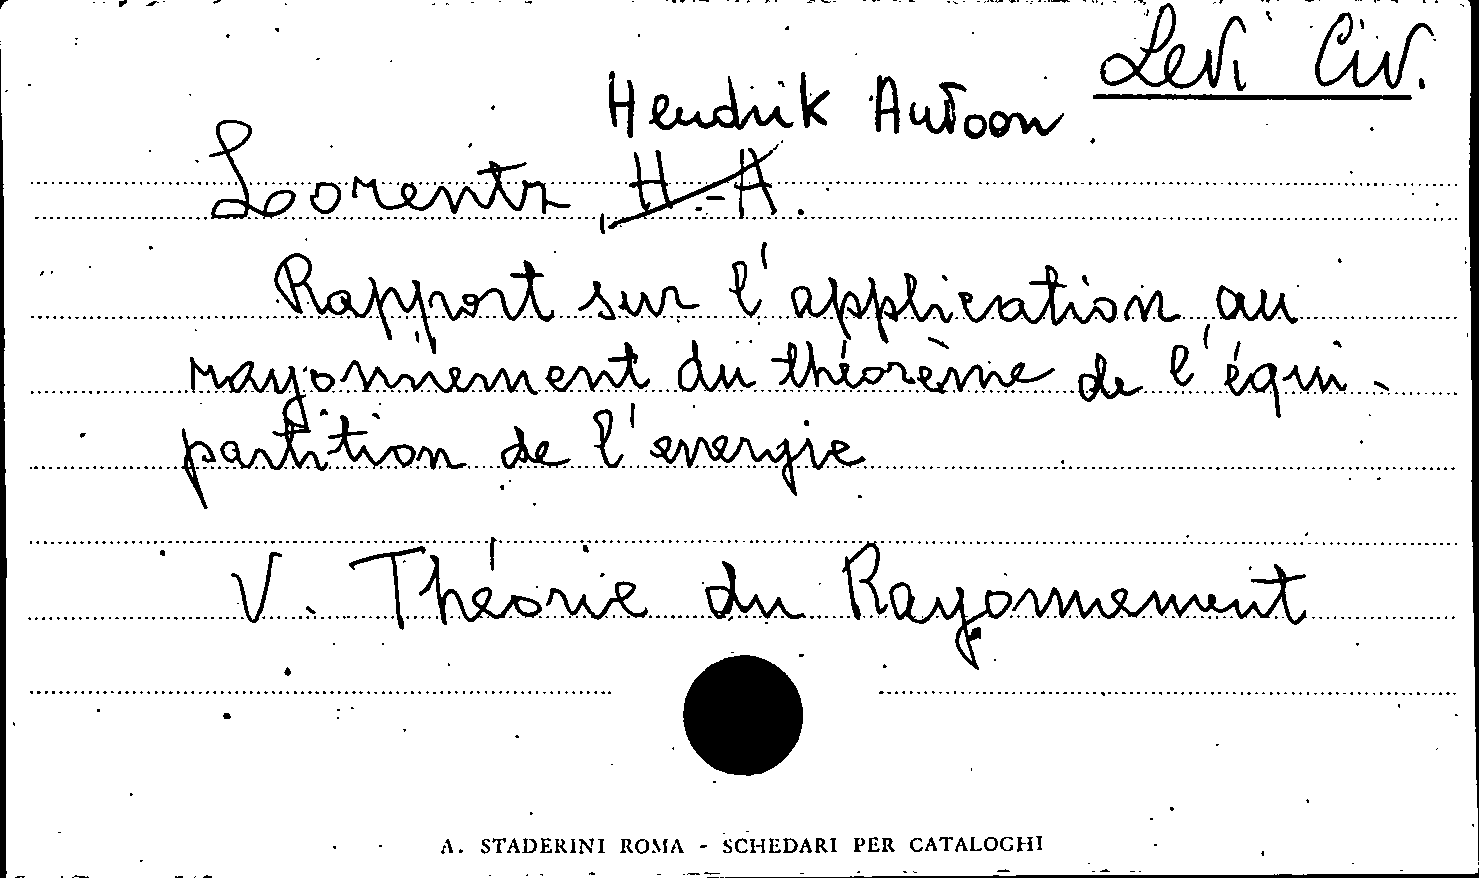 Levi Civ.
Hendrik Antoon
Lorentz, H.-A.
Rapport sur l'application au
rayonnement du théorème de l'équi-
partition de l'energie
V. Théorie du Rayonnement
A. STADERINI ROMA - SCHEDARI PER CATALOGHI